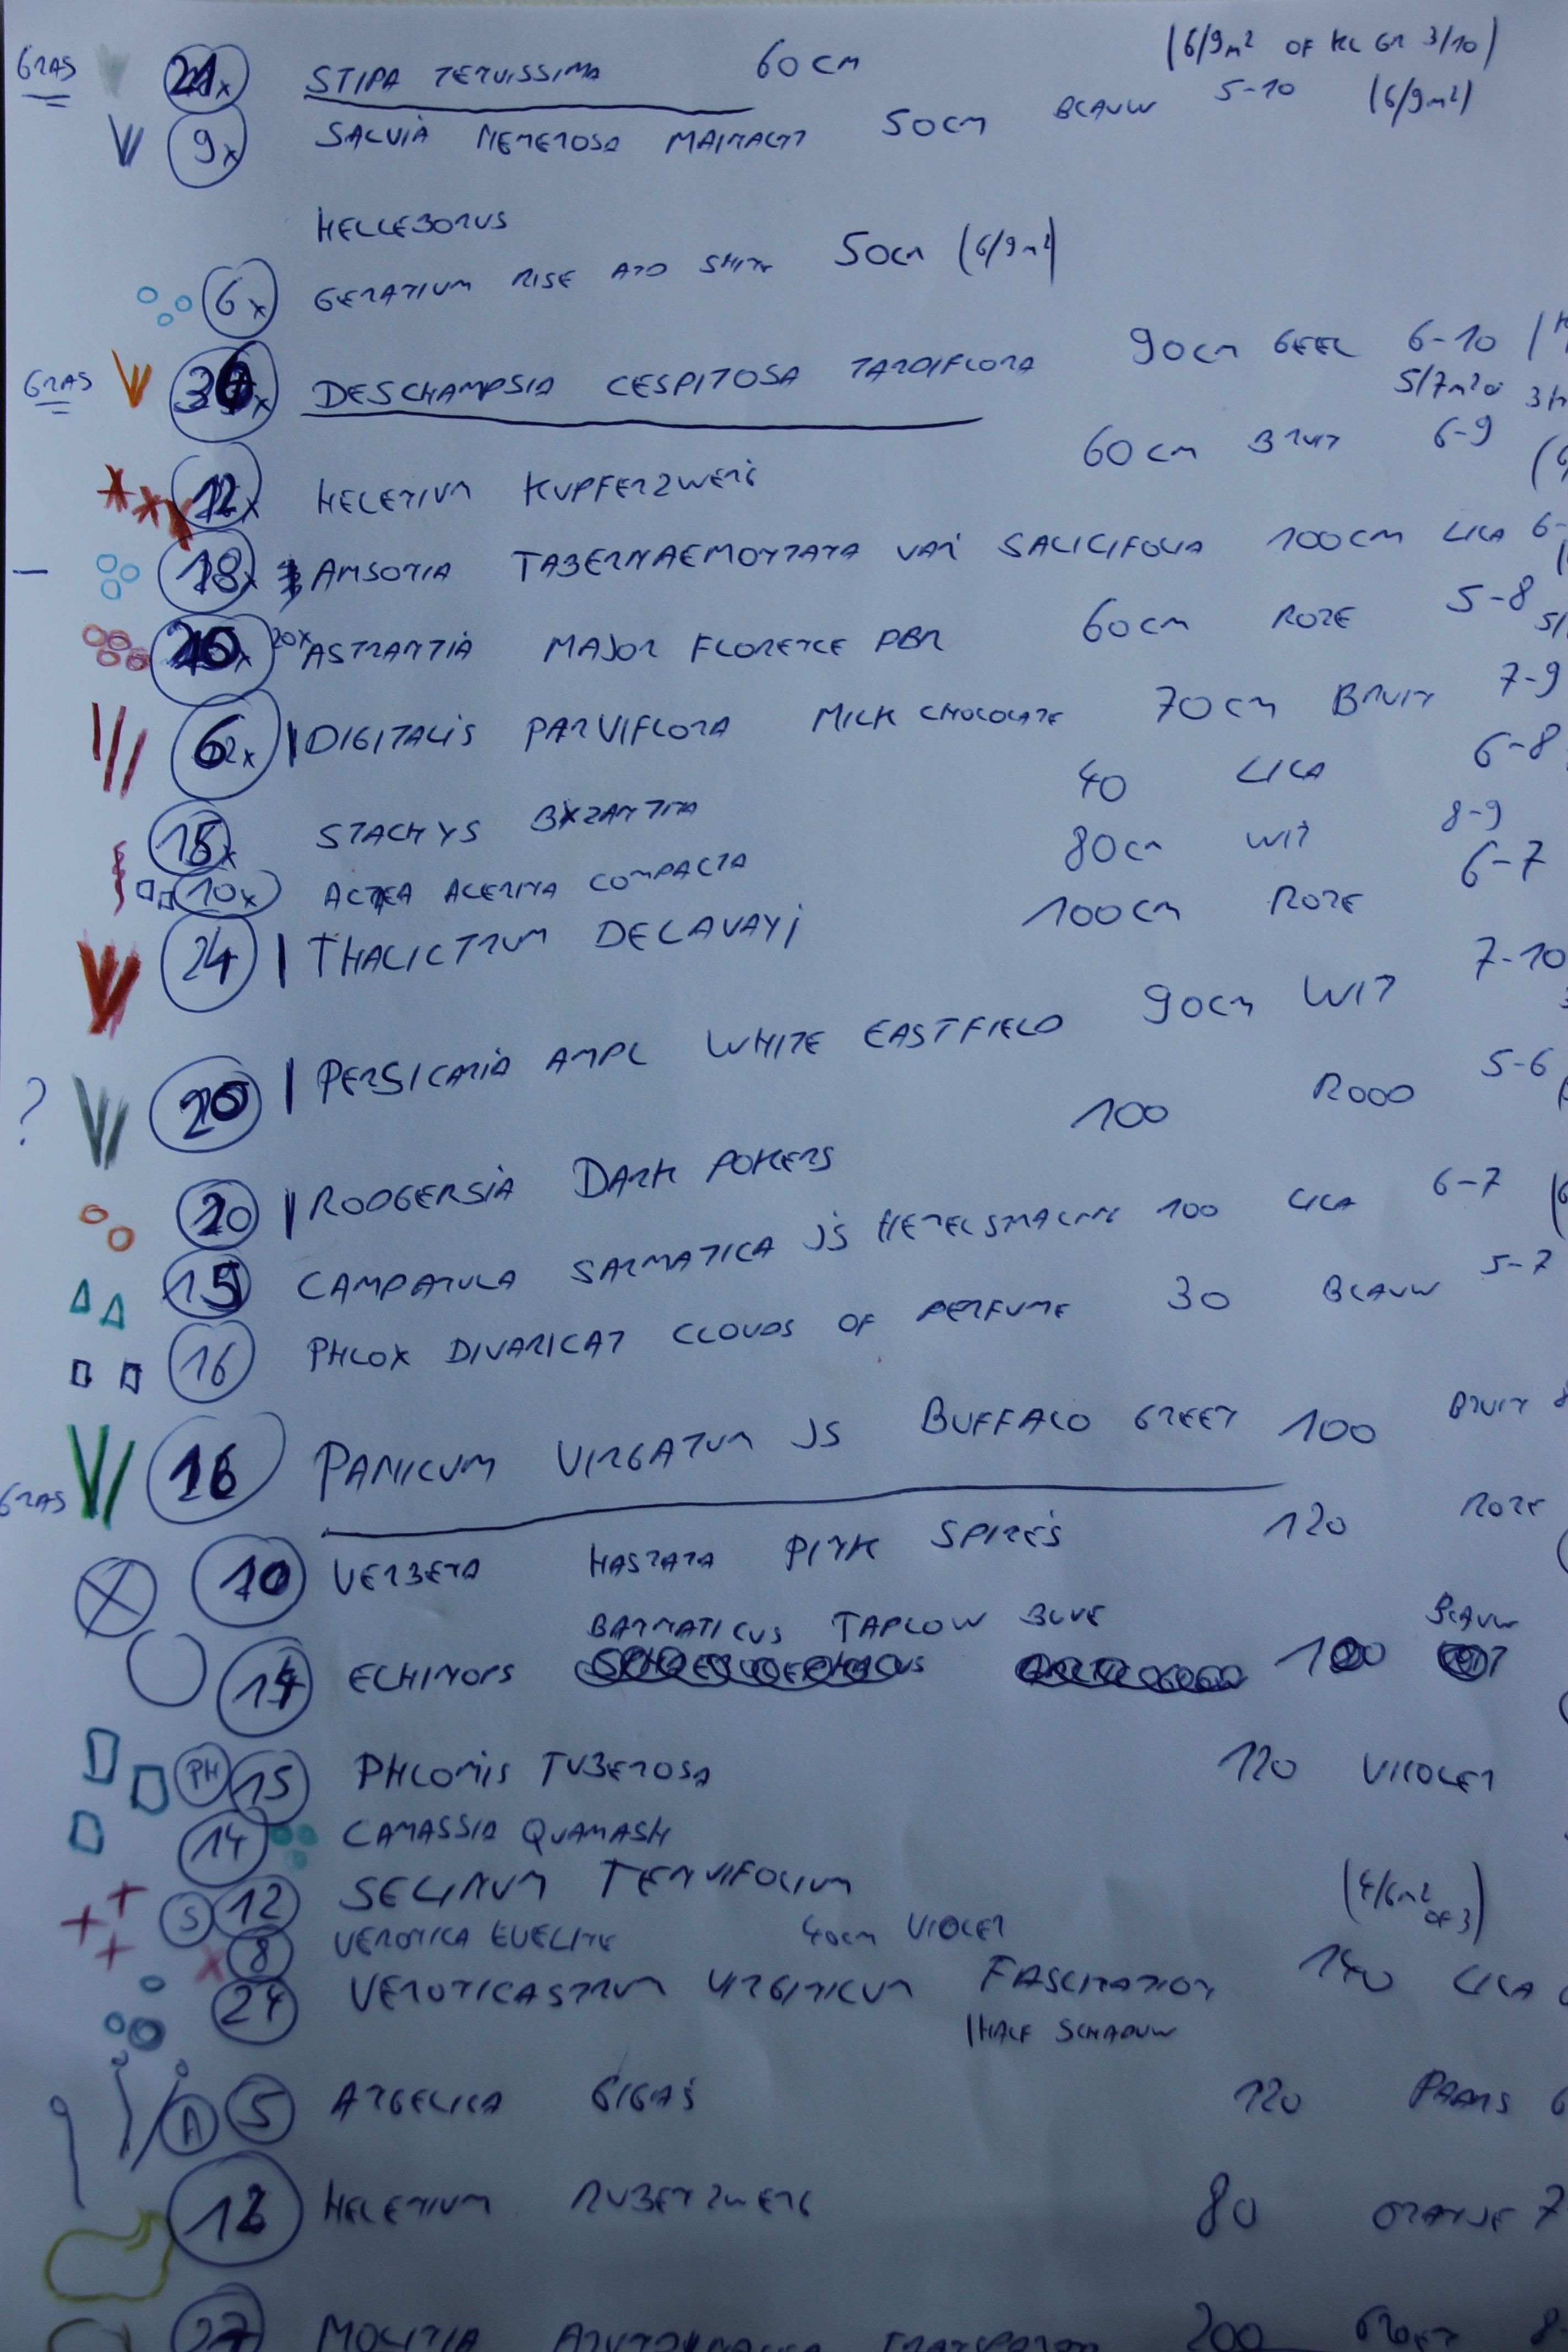 GRAS 21x STIPA TENUISSIMA 60cm (6/9m² OF KL GR 3/10)
9x SALVIA NEMEROSA MAINACHT 50cm BLAUW 5-10 (6/9m²)
HELLEBORUS
6x GERANIUM RISE AND SHINE 50cm (6/9m²)
GRAS 36x DESCHAMPSIA CESPITOSA TARDIFLORA 90cm GEEL 6-10
5/7m²
12x HELENIUM KUPFERZWERG 60cm BRUIN 6-9
18x AMSONIA TABERNAEMONTANA VAR SALICIFOLIA 100CM LILA 6-
20x ASTRANTIA MAJOR FLORENCE PBR 60cm ROZE 5-8 5/
6 DIGITALIS PARVIFLORA MILK CHOCOLATE 70cm BRUIN 7-9
15x STACHYS BYZANTINA 40 LILA 6-8
10x ACTEA ACERINA COMPACTA 80cm WIT 8-9
24 THALICTRUM DELAVAYI 100cm ROZE 6-7
? 20 PERSICARIA AMPL WHITE EASTFIELD 90cm WIT 7-10
20 RODGERSIA DARK POKERS 100 ROOD 5-6
15 CAMPANULA SARMATICA JS HEMELSMACHT 100 LILA 6-7
16 PHLOX DIVARICAT CLOUDS OF PERFUME 30 BLAUW 5-7
GRAS 16 PANICUM VIRGATUM JS BUFFALO GREEN 100 BRUIN 8
10 VERBENA HASTATA PINK SPIRES 120 ROZE
BANNATICUS TAPLOW BLUE BLAUW
14 ECHINOPS 100
PH 15 PHLOMIS TUBEROSA 120 VIOLET
14 CAMASSIA QUAMASH
S 12 SELINUM TENUIFOLIUM (4/6m² OF 3)
8 VERONICA EVELINE 40cm VIOLET
24 VERONICASTRUM VIRGINICUM FASCINATION 140 LILA
HALF SCHADUW
A 5 ANGELICA GIGAS 120 PAARS 6
HELENIUM RUBENZWERG 80 ORANJE 7
27 MOLINIA ARUNDINACEA TRANSPARENT 200 GROEN 8-